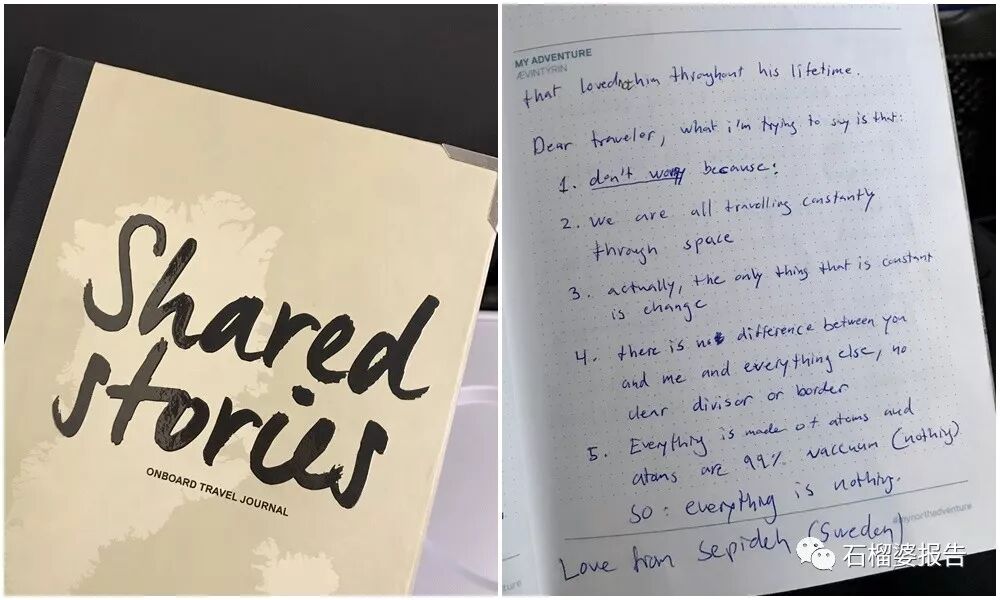 Shared
stories
ONBOARD TRAVEL JOURNAL
MY ADVENTURE
ÆVINTÝRIN
that loved him throughout his lifetime.
Dear traveler, what i'm trying to say is that:
1. don't worry because:
2. we are all travelling constantly
through space
3. actually, the only thing that is constant
is change
4. there is no difference between you
and me and everything else, no
clear divisor or border
5. Everything is made of atoms and
atoms are 99% vaccuum (nothing)
SO: everything is nothing.
#mynorthadventure
Love from Sepideh (Sweden)
石榴婆报告